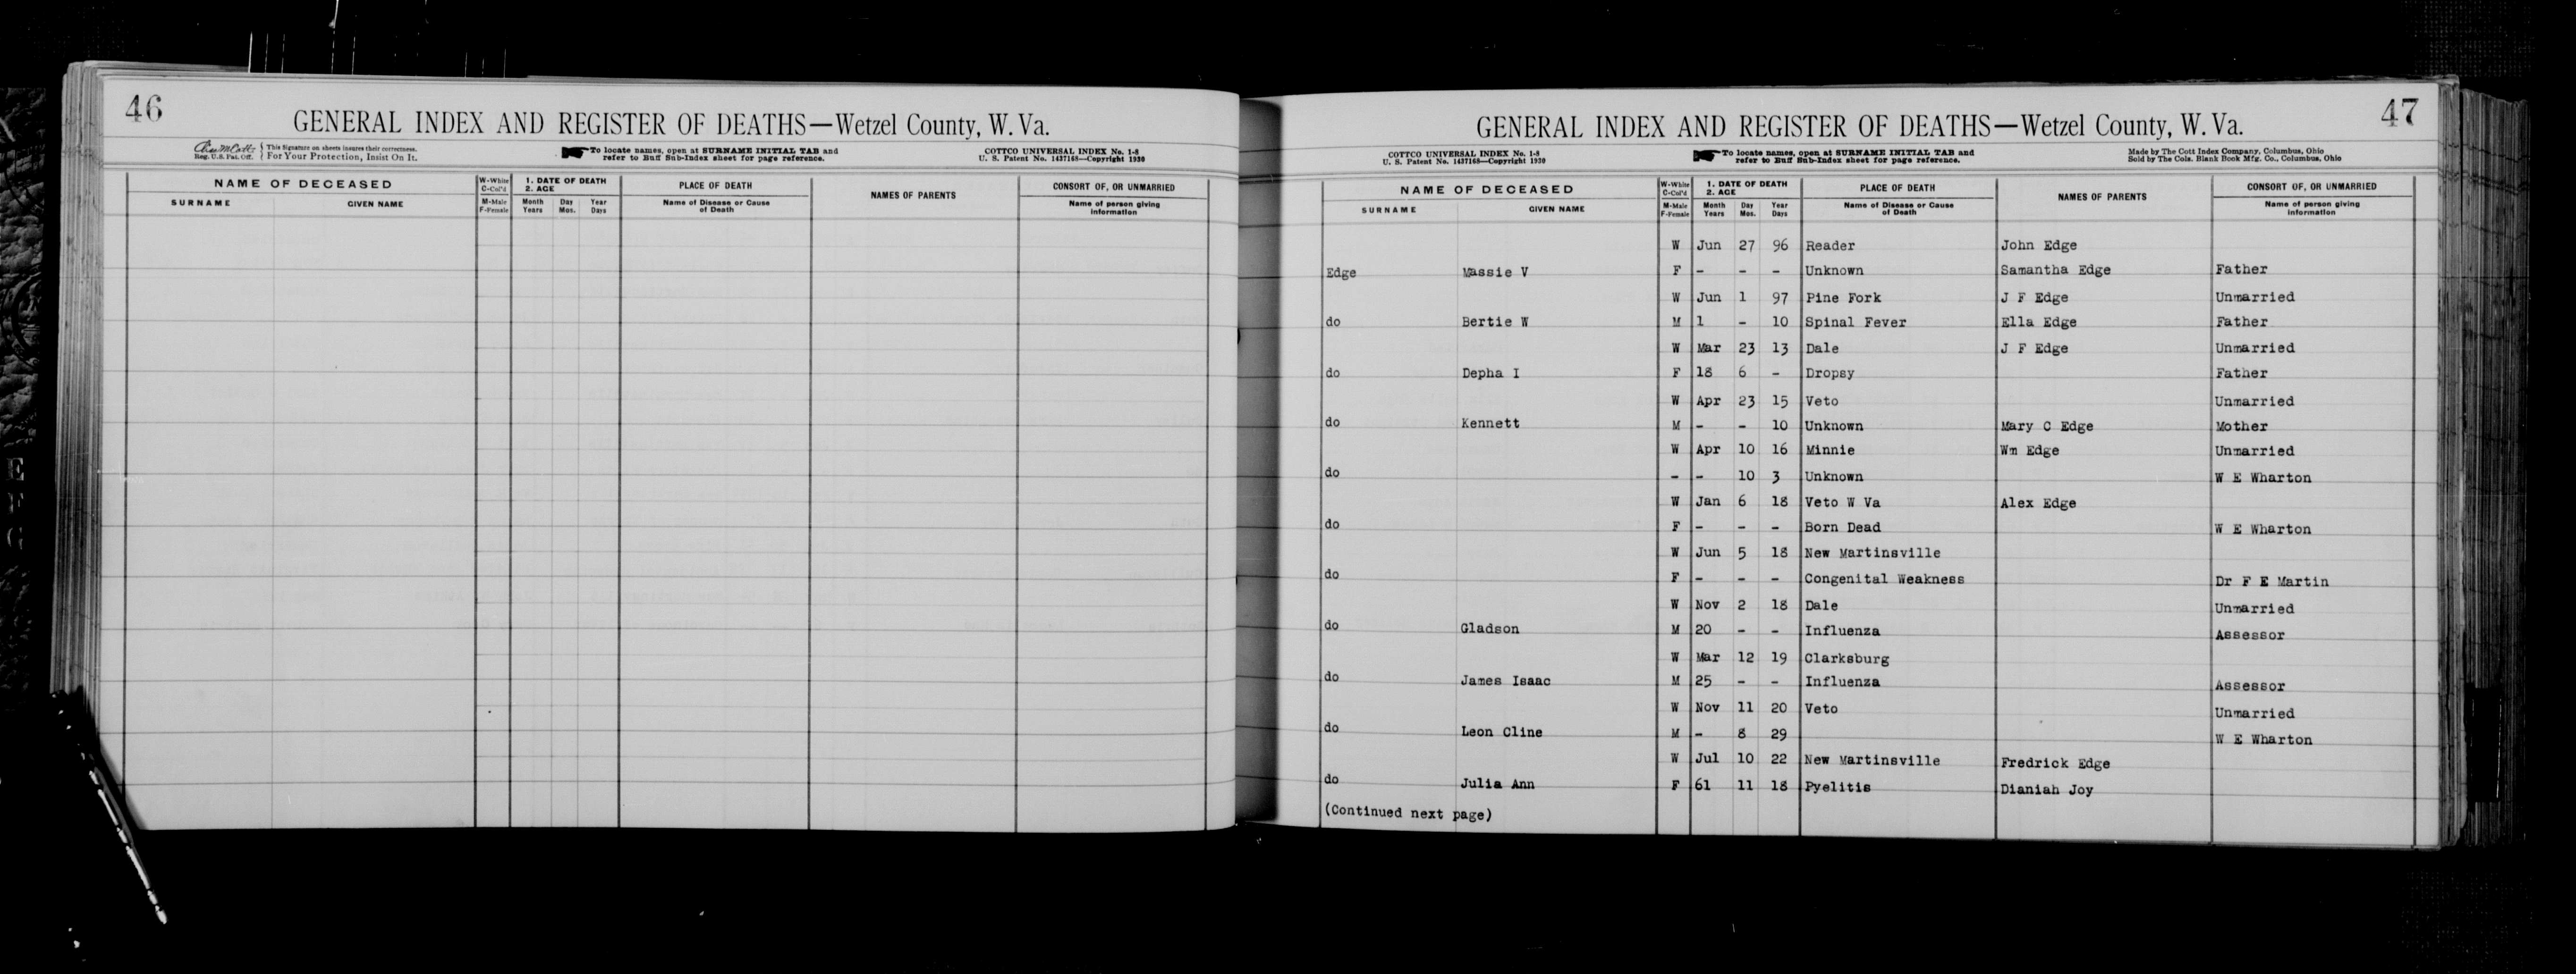 46
GENERAL INDEX AND REGISTER OF DEATHS—Wetzel County, W. Va.
Reg. U.S. Pat. Off. This Signature on sheets insures their correctness.
For Your Protection, Insist On It.
To locate names, open at SURNAME INITIAL TAB and
refer to Buff Sub-Index sheet for page reference.
COTTCO UNIVERSAL INDEX No. 1-8
U. S. Patent No. 1437168—Copyright 1930
NAME OF DECEASED
SURNAME GIVEN NAME
W-White
C-Col'd
M-Male
F-Female
1. DATE OF DEATH
2. AGE
Month Day Year
Years Mos. Days
PLACE OF DEATH
Name of Disease or Cause
of Death
NAMES OF PARENTS
CONSORT OF, OR UNMARRIED
Name of person giving
information
E
F
G
47
GENERAL INDEX AND REGISTER OF DEATHS—Wetzel County, W. Va.
COTTCO UNIVERSAL INDEX No. 1-8
U. S. Patent No. 1437168—Copyright 1930
To locate names, open at SURNAME INITIAL TAB and
refer to Buff Sub-Index sheet for page reference.
Made by The Cott Index Company, Columbus, Ohio
Sold by The Cols. Blank Book Mfg. Co., Columbus, Ohio
NAME OF DECEASED
SURNAME GIVEN NAME
W-White
C-Col'd
M-Male
F-Female
1. DATE OF DEATH
2. AGE
Month Day Year
Years Mos. Days
PLACE OF DEATH
Name of Disease or Cause
of Death
NAMES OF PARENTS
CONSORT OF, OR UNMARRIED
Name of person giving
information
W Jun 27 96 Reader John Edge
Edge Massie V F - - - Unknown Samantha Edge Father
W Jun 1 97 Pine Fork J F Edge Unmarried
do Bertie W M 1 - 10 Spinal Fever Ella Edge Father
W Mar 23 13 Dale J F Edge Unmarried
do Depha I F 18 6 - Dropsy Father
W Apr 23 15 Veto Unmarried
do Kennett M - - 10 Unknown Mary C Edge Mother
W Apr 10 16 Minnie Wm Edge Unmarried
do - - 10 3 Unknown W E Wharton
W Jan 6 18 Veto W Va Alex Edge
do F - - - Born Dead W E Wharton
W Jun 5 18 New Martinsville
do F - - - Congenital Weakness Dr F E Martin
W Nov 2 18 Dale Unmarried
do Gladson M 20 - - Influenza Assessor
W Mar 12 19 Clarksburg
do James Isaac M 25 - - Influenza Assessor
W Nov 11 20 Veto Unmarried
do Leon Cline M - 8 29 W E Wharton
W Jul 10 22 New Martinsville Fredrick Edge
do Julia Ann F 61 11 18 Pyelitis Dianiah Joy
(Continued next page)